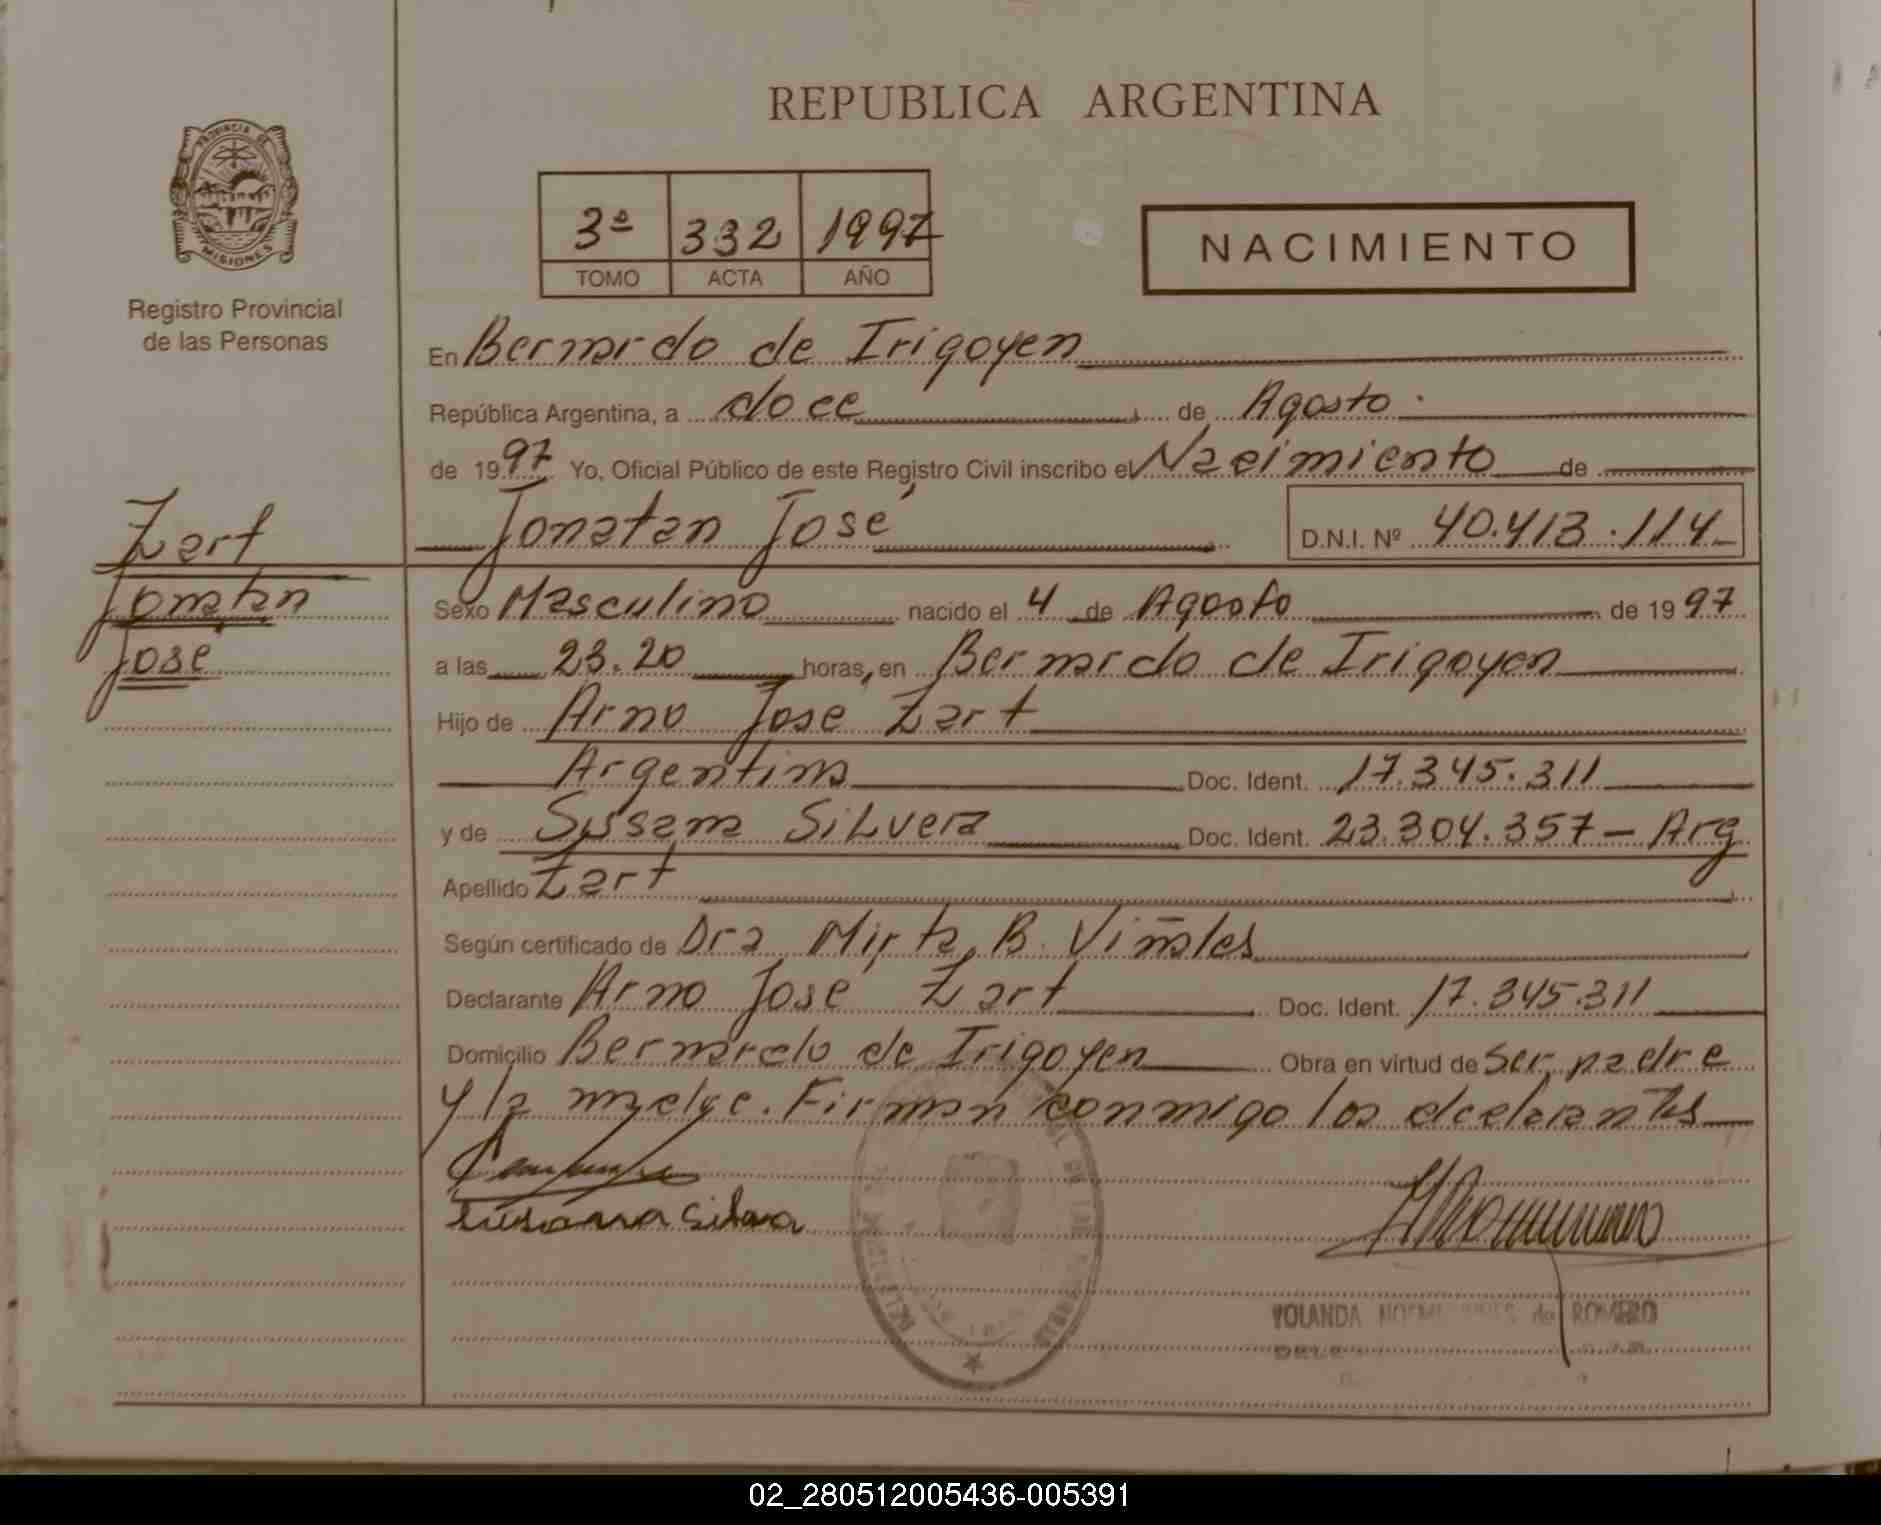 REPUBLICA ARGENTINA
PROVINCIA DE MISIONES
Registro Provincial
de las Personas
3º 332 1997
TOMO ACTA AÑO
NACIMIENTO
En Bernardo de Irigoyen
República Argentina, a doce de Agosto
de 1997 Yo, Oficial Público de este Registro Civil inscribo el Nacimiento de
Jonatan José D.N.I. Nº 40.413.114
Zart
Jonatan
José
Sexo Masculino nacido el 4 de Agosto de 1997
a las 23.20 horas, en Bernardo de Irigoyen
Hijo de Arno José Zart
Argentina Doc. Ident. 17.345.311
y de Susana Silvera Doc. Ident. 23.304.357 - Arg
Apellido Zart
Según certificado de Dra Mirta B. Viñales
Declarante Arno José Zart Doc. Ident. 17.345.311
Domicilio Bernardo de Irigoyen Obra en virtud de ser padre
y la madre. Firman conmigo los declarantes
Susana Silvera
YOLANDA de ROMERO
02_280512005436-005391